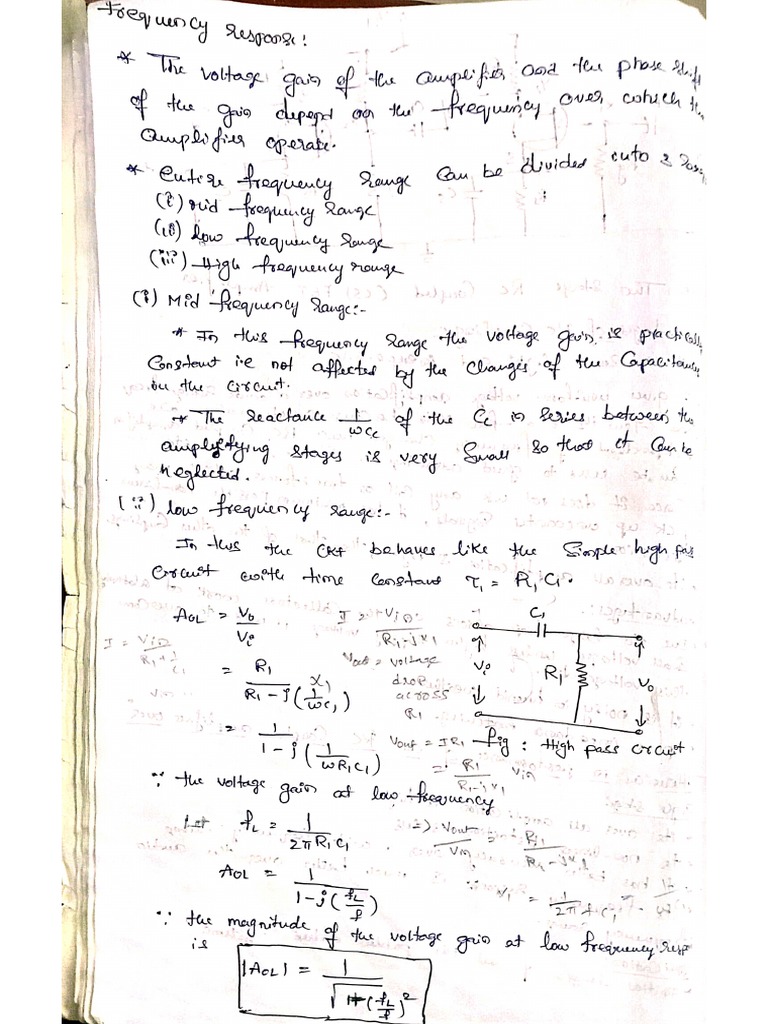 Frequency response:
* The voltage gain of the amplifier and the phase shift
of the gain depend on the frequency over which the
amplifier operate.
* entire frequency range can be divided into 3
(i) Mid frequency range
(ii) low frequency range
(iii) High frequency range
(i) Mid frequency range:-
* In this frequency range the voltage gain is practically
Constant i.e not affected by the changes of the Capacitance
in the circuit.
* The reactance 1/ωCc of the Cc in series between the
amplifying stages is very small so that it can be
neglected.
(ii) low frequency range:-
In this the CKt behaves like the simple high pass
circuit with time constant τ1 = R1C1.
AOL = Vo/Vi
I = Vin/(R1-jX1)
I = Vin/(R1+1/C1)
= R1/(R1 - j(1/ωC1))
X1
Vout = voltage
drop
across
R1.
C1
Vi
R1
Vo
= 1/(1 - j(1/ωR1C1))
Vout = IR1
= R1/(R1-jX1) Vin
Fig: High pass circuit
∵ the voltage gain at low frequency
let fL = 1/(2πR1C1)
=> Vout/Vin = R1/(R1-jX1)
AOL = 1/(1-j(fL/f))
∵ X1 = 1/(2πfC1)
∵ the magnitude of the voltage gain at low frequency resp
is
|AOL| = 1/√(1+(fL/f)²)